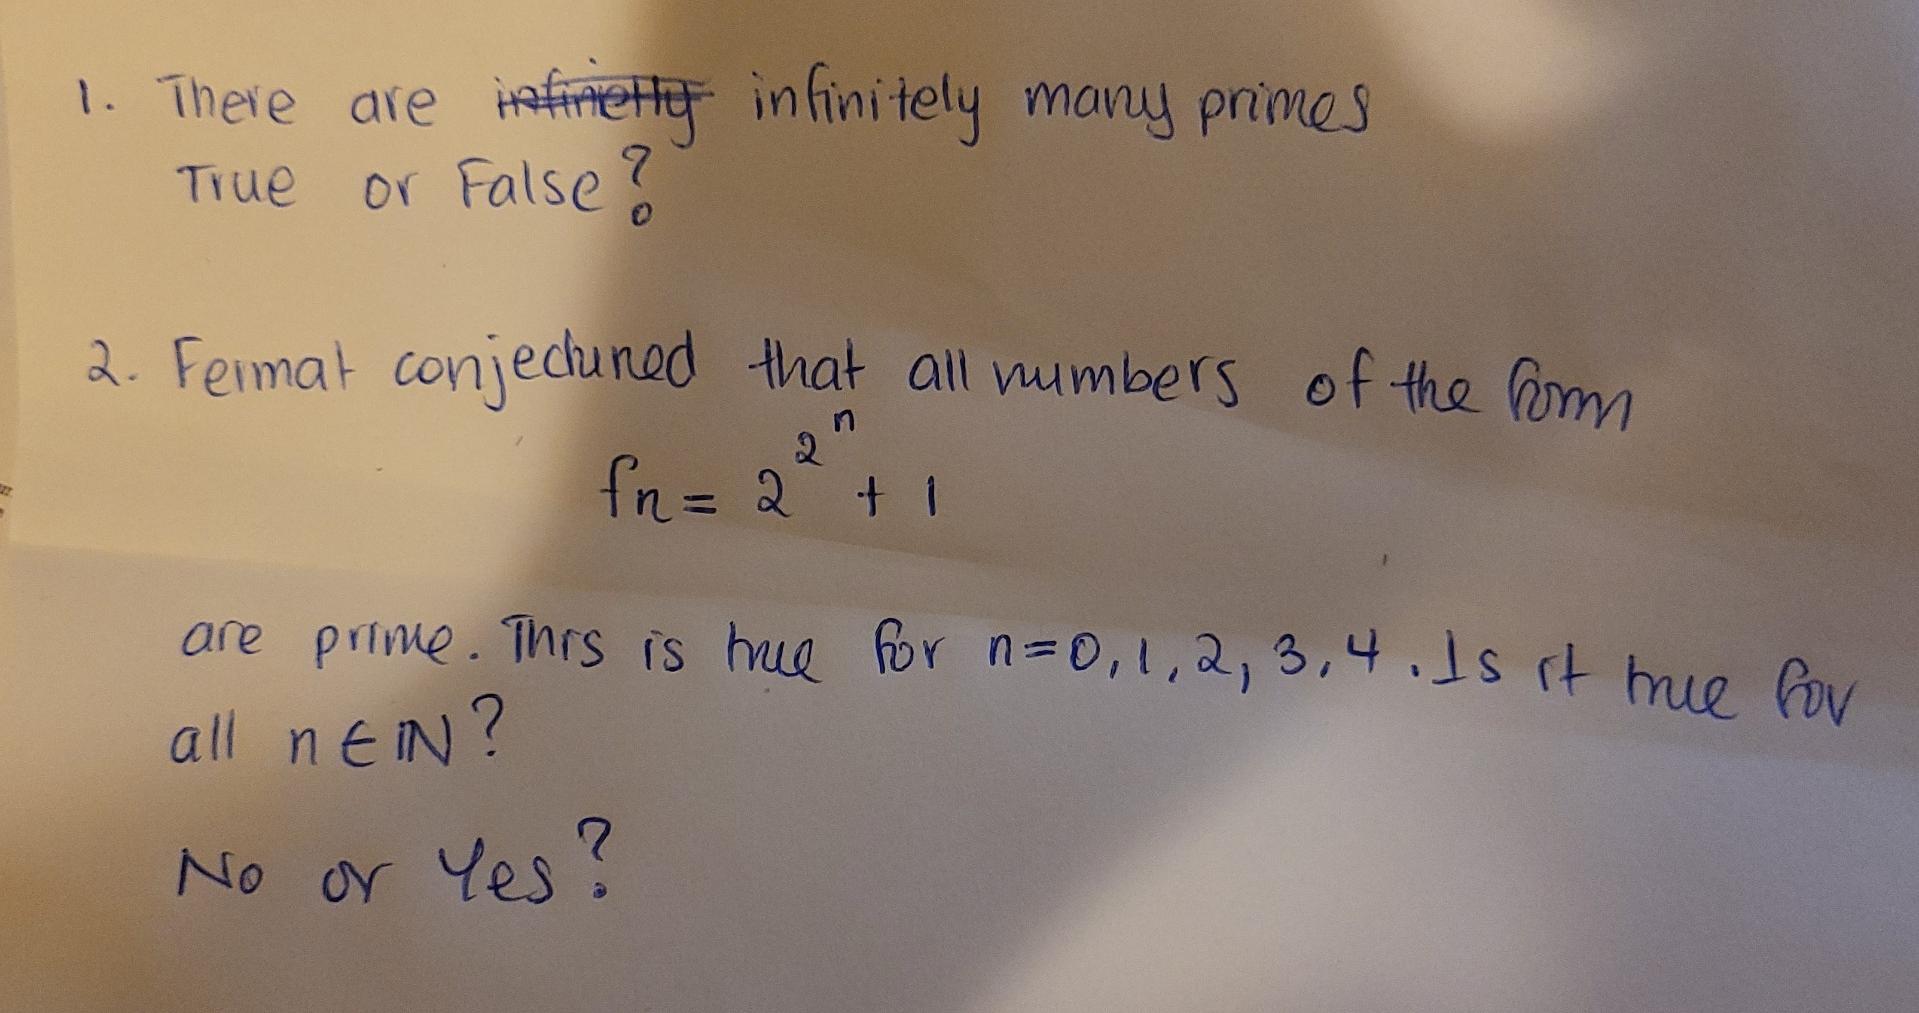 1. There are infinitely many primes
True or False?
2. Fermat conjectured that all numbers of the form
fn = 2^2^n + 1
are prime. This is true for n=0,1,2,3,4. Is it true for
all n∈ℕ?
No or Yes?